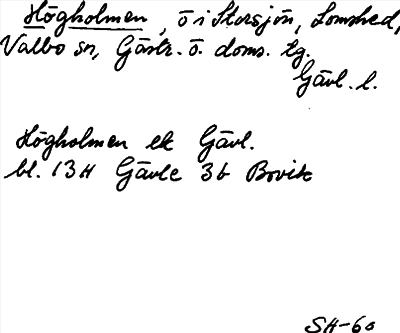 Högholmen, ö i Storsjön, Lomshed,
Valbo sn, Gästr. ö. doms. tg.
Gävl. l.
Högholmen ek Gävl.
bl. 13H Gävle 3b Bovik
SH-60